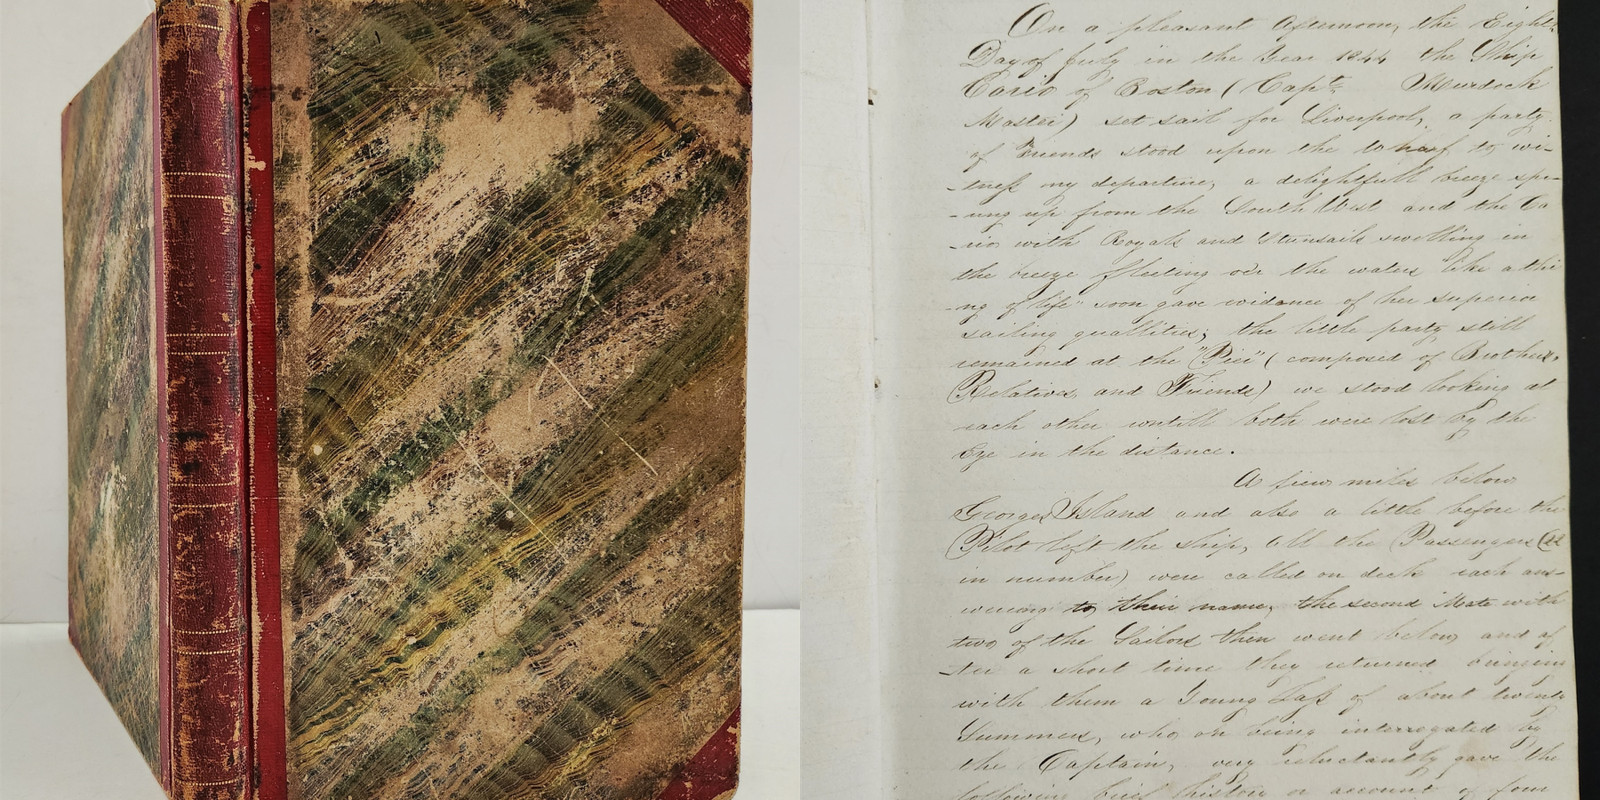 On a pleasant afternoon, the Eighth
Day of July in the Year 1844 the Ship
Cario of Boston (Capt. Murdock
Master) set sail for Liverpool, a party
of Friends stood upon the Wharf to wi-
-tness my departure, a delightfull breeze spr-
-ung up from the South West and the Ca
-rio with Royals and Stunsails swelling in
the breeze fleeting oer the waters like a thi
-ng of life" soon gave evidance of her superior
sailing quallities; the little party still
remained at the "Pier" (composed of Brothers,
Relatives and Friends) we stood looking at
each other untill both were lost by the
Eye in the distance.
A few miles below
Georges Island and also a little before the
Pilot left the ship, all the Passengers
in number) were called on deck each ans-
wering to their name, the second Mate with
two of the Sailors then went below and af
-ter a short time they returned bringing
with them a Young Lass of about twenty
Summers, who on being interrogated by
the Captain, very reluctantly gave the
following brief history or account of four